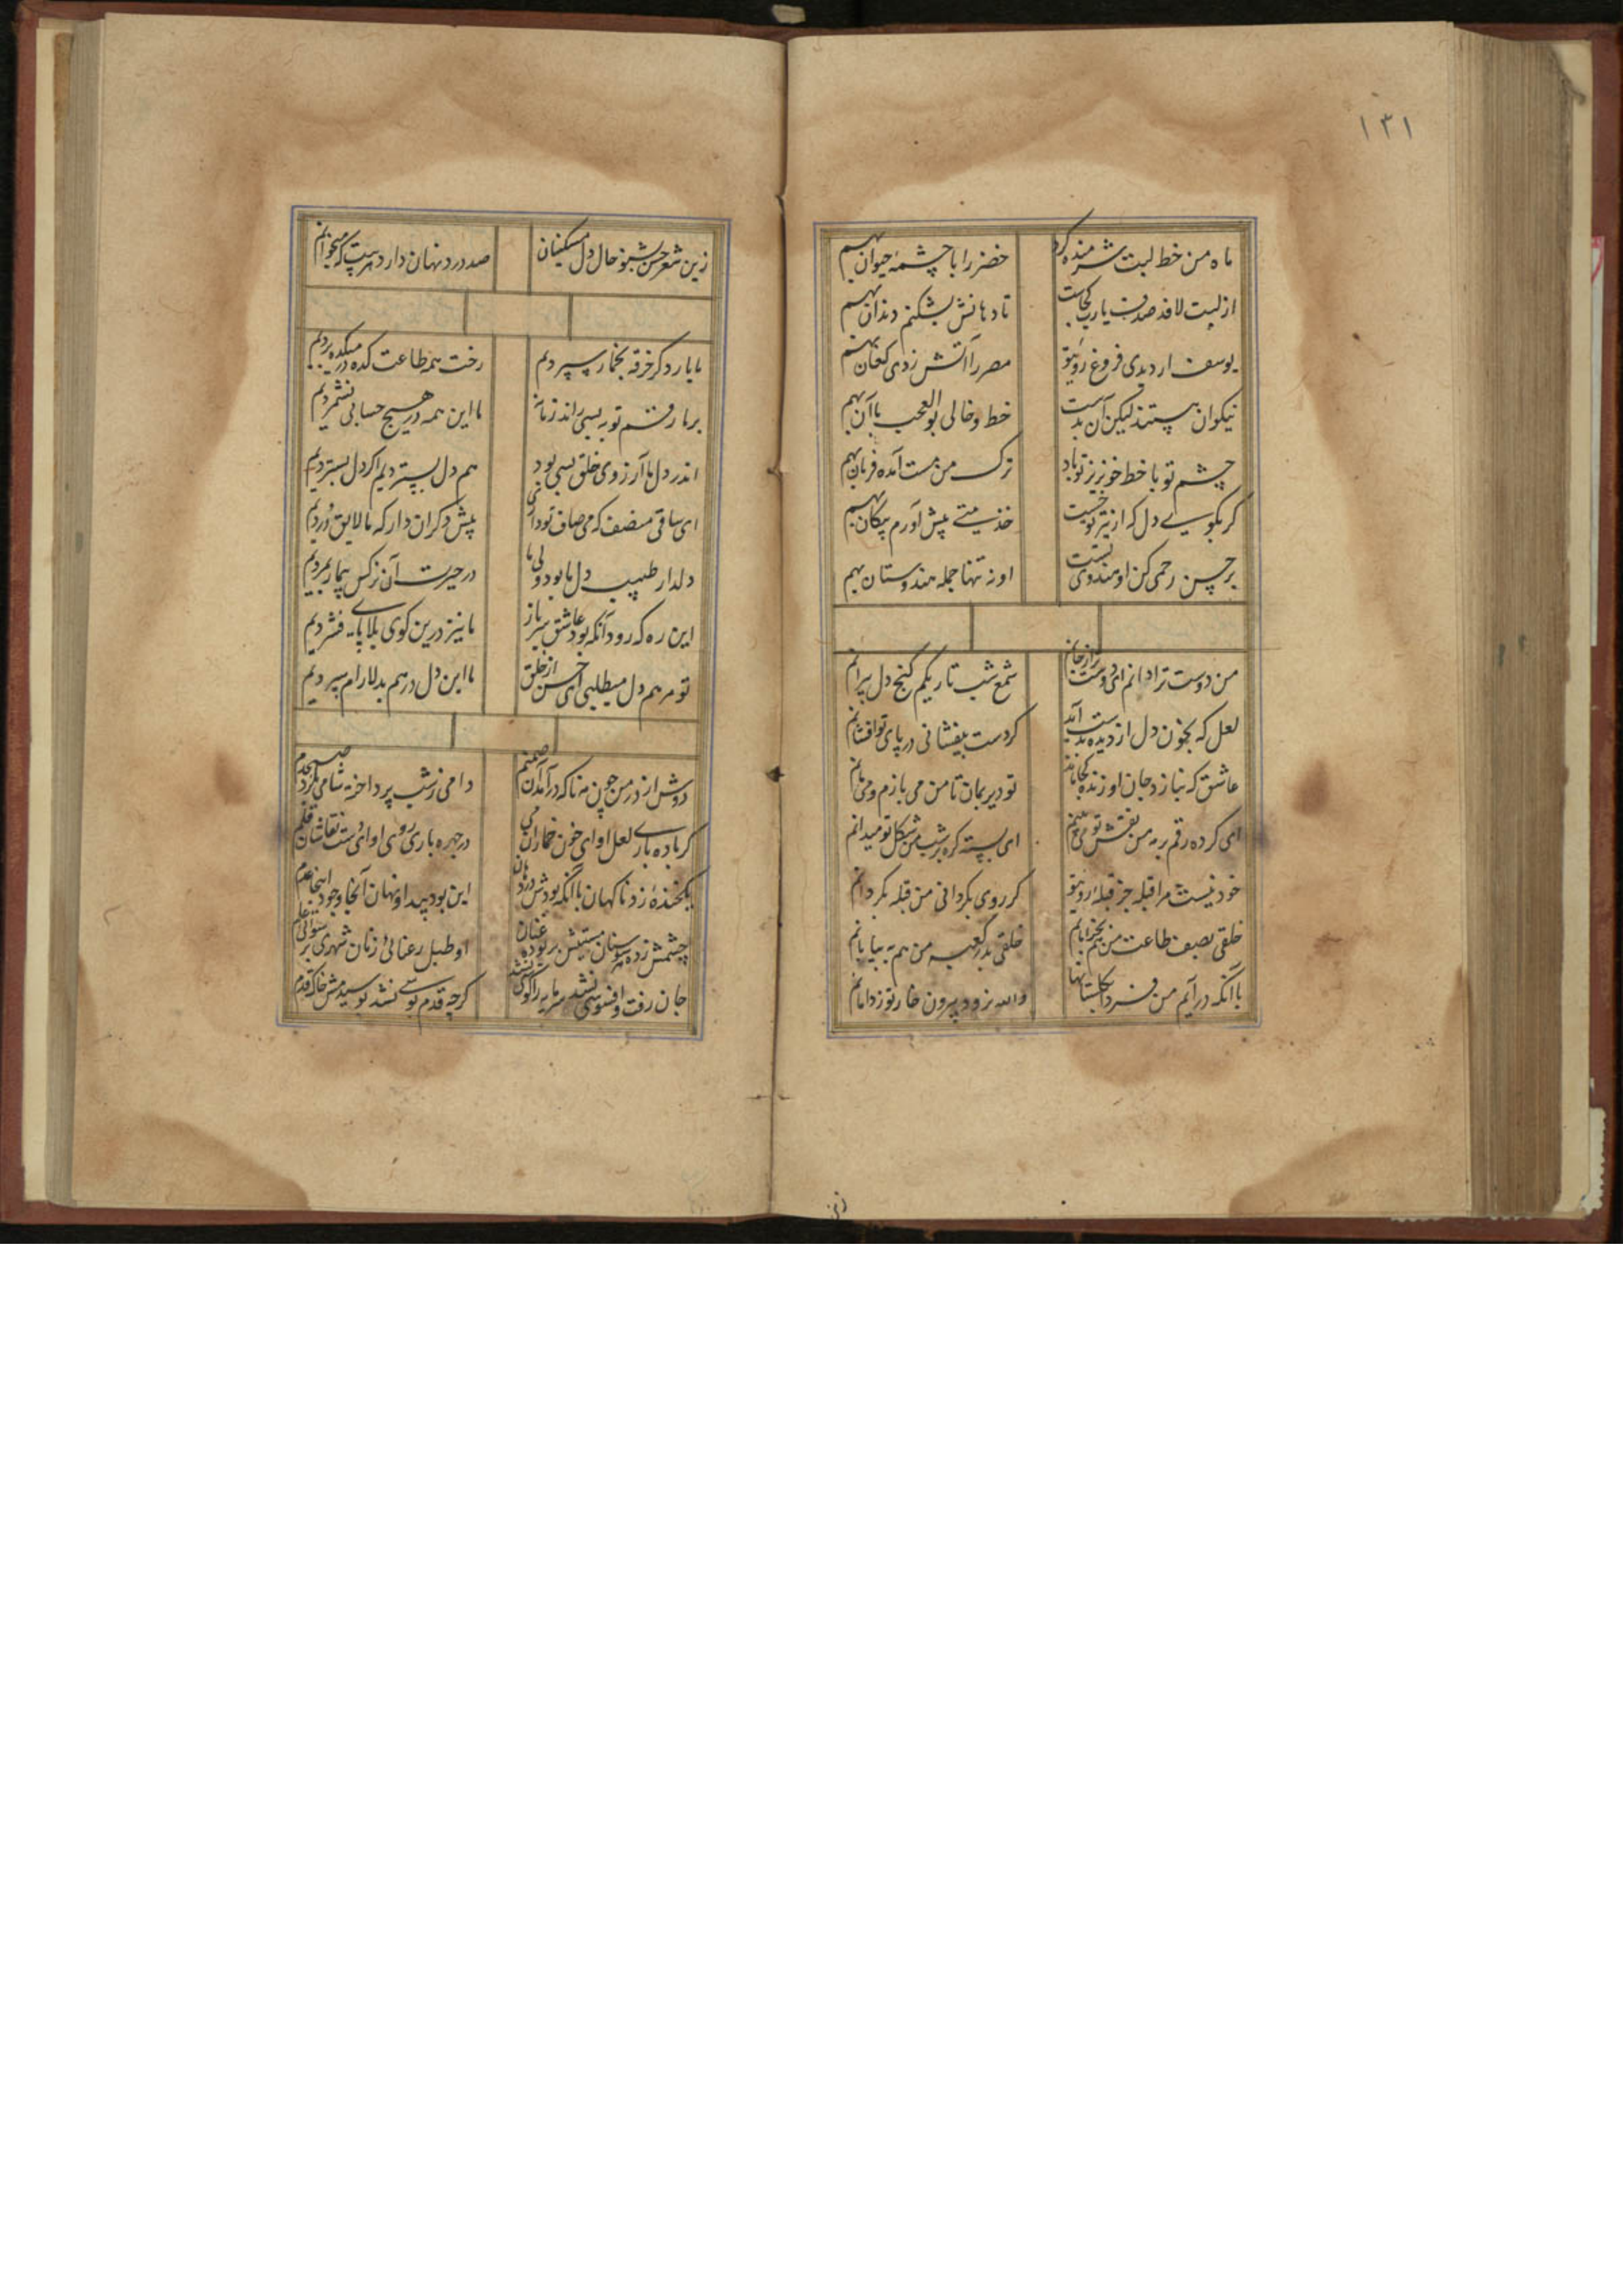 ۱۳۱
ماه من خط لبت شرمنده کرد خضر را با چشمهٔ حیوان بهم
از لبت لافد صدف یارب کجاست تا دهانش بشکنم دندان بهم
یوسف ار دیدی فروغ روی تو مصر را آتش زدی کنعان بهم
نیکوان هستند لیکن آن بدست خط و خالی بوالعجب با آن بهم
چشم تو با خط خونریز تو باد ترک من مست آمده قربان بهم
گر بگویی دل که از تیر تو خست خدمتی پیش آورم پیکان بهم
بر حسن رحمی کن او هندوی تست او نه تنها جمله هندوستان بهم
من دوست ترا دانم ای دوست تر از جانم شمع شب تاریکم گنج دل ویرانم
لعل که بخون دل از دیده بدست آمد گر دست بیفشانی در پای تو افشانم
عاشق که نبازد جان او زنده کجا ماند تو دیر بمان تا من می بازم و می مانم
ای کرده رقم بر مه من نقش تو می بینم ای بسته گره بر شب من شکل تو میدانم
خود نیست مرا قبله جز قبلهٔ روی تو گر روی بگردانی من قبله بگردانم
خلقی بصف طاعت من هم بخراباتم خلقی بدر کعبه من هم به بیابانم
با آنکه درآیم من فردا بگلستانها والله نرود بیرون خار تو ز دامانم
زنی
زین شعر حسن بشنو حال دل مسکینان صد درد نهان دارد هر بیت که میخوانم
ما بار دگر خرقه بخمار سپردیم رخت همه طاعت کده در میکده بردیم
بر ما رقم توبه بسی راند زمانه ما این همه در هیچ حسابی نشمردیم
اندر دل ما آرزوی خلق بسی بود هم دل بستردیم اگر دل بستردیم
ای ساقی منصف که می صاف تو داری پیش دگران دار که ما لایق دردیم
دلدار طبیب دل ما بود ولی ما در حیرت آن نرگس بیمار بمردیم
این ره که رود آنکه بود عاشق سرباز ما نیز درین کوی بلا پای فشردیم
تو مرهم دل میطلبی ای حسن از خلق ما این دل درهم بدلارام سپردیم
دوش از در من چون مه ناگه درآمد آن صنم دامی ز شب پرداخته شامی بگرد صبحدم
گر باده باری لعل او ای خون خماران در چهره باری روی او ای دست نقاشان قلم
یکخنده زد ناگهان با آنکه بودش در دهان این بود پیدا و نهان آنجا وجود اینجا عدم
چشمش زده بر سنان مستیش بر بوده عنان او طبل رعنائی زنان شهری بر
جان رفت و افسوسی نشد سرمایه را گرچه قدم بوسی نشد بوسیدمش خاک قدم